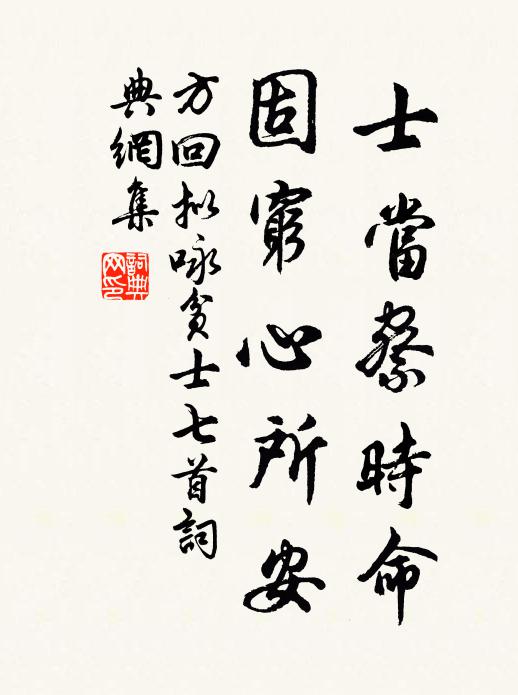 士當察時命
固窮心所安
方回拟咏貧士七首詞
典網集
詞典
网印